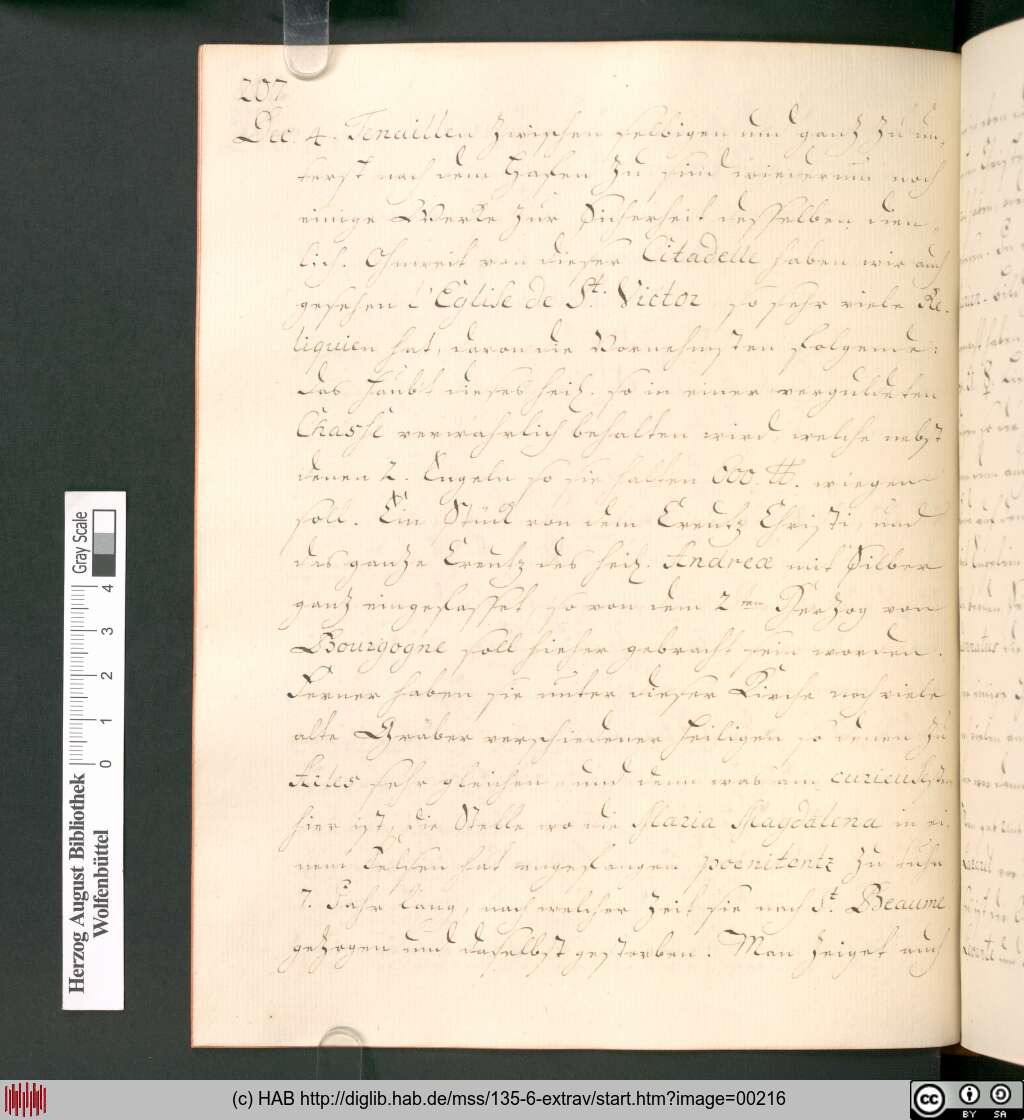 207
Dec. 4. Tenaillen zwischen selbigen und ganz zu un,
terst nach dem Hafen zu sind wiederum noch
einige Werke zur Sicherheit desselben dien,
lich. Ohnweit von dieser Citadelle haben wir auch
gesehen l'Eglise de St. Victor so sehr viele Re,
liquien hat, davon die Vornehmsten folgende:
das Haubt dieses heil. so in einer verguldeten
Chasse verwahrlich behalten wird, welche nebst
denen 2. Engeln so sie halten 600. ℔. wiegen
soll. Ein Stück von dem Creutz Christi und
das ganze Creutz des heil. Andreæ mit Silber
ganz eingefasset, so von dem 2ten Herzog von
Bourgogne soll hieher gebracht sein worden.
Ferner haben sie unter dieser Kirche noch viele
alte Gräber verschiedener Heiligen so denen zu
Arles sehr gleichen und denn was am curieusesten
hier ist, die Stelle wo die Maria Magdalena in ei,
nem Felsen hat angefangen poenitentz zu thun
7. Jahr lang, nach welcher Zeit sie nach St. Beaume
gezogen und daselbst gestorben. Man zeiget auch
Herzog August Bibliothek
Wolfenbüttel
Gray Scale
0 1 2 3 4
(c) HAB http://diglib.hab.de/mss/135-6-extrav/start.htm?image=00216
cc BY SA